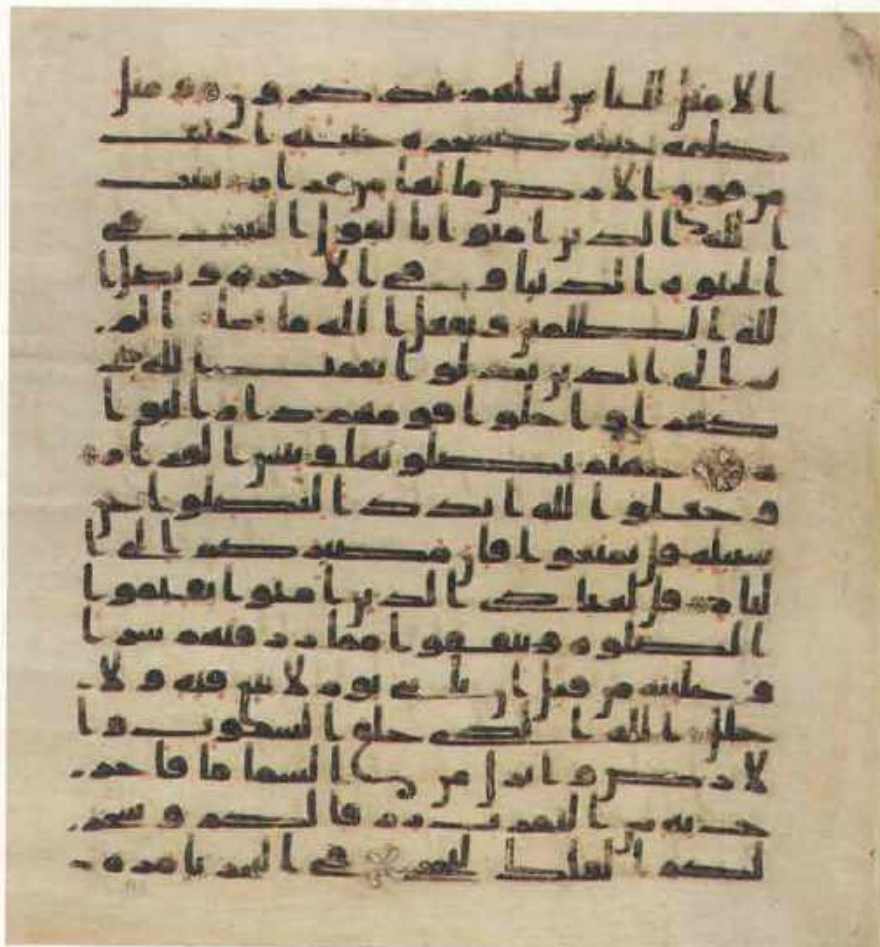 الامثل للناس لعلهم يتذكرون ومثل
كلمة خبيثة كشجرة خبيثة اجتثت
من فوق الارض ما لها من قرار يثبت
الله الذين امنوا بالقول الثابت في
الحيوة الدنيا وفي الاخرة ويضل ا
لله الظلمين ويفعل الله ما يشا الم
تر الى الذين بدلوا نعمت الله
كفرا واحلوا قومهم دار البوا
ر جهنم يصلونها وبئس القرار
وجعلوا لله اندادا ليضلوا عن
سبيله قل تمتعوا فان مصيركم الى ا
لنار قل لعبادي الذين امنوا يقيموا
الصلوة وينفقوا مما رزقنهم سرا
وعلنية من قبل ان ياتي يوم لا بيع فيه ولا
خلل الله الذي خلق السموت وا
لارض وانزل من السما ما فاخر
ج به من الثمرت رزقا لكم وسخر
لكم الفلك لتجري في البحر بامره